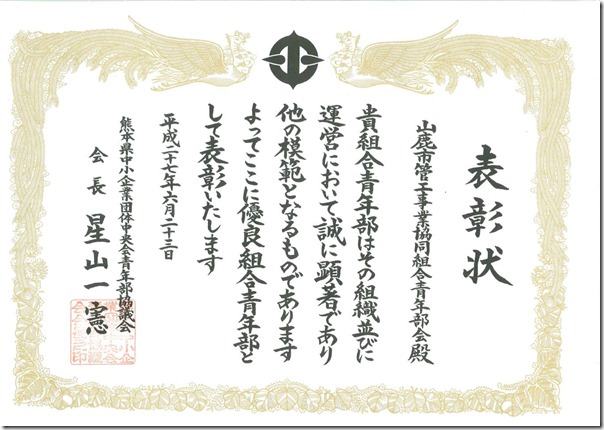 表彰状
山鹿市管工事業協同組合青年部会殿
貴組合青年部はその組織並びに
運営において誠に顕著であり
他の模範となるものであります
よってここに優良組合青年部と
して表彰いたします
平成二十七年六月二十三日
熊本県中小企業団体中央会青年部協議会
会長 星山一憲